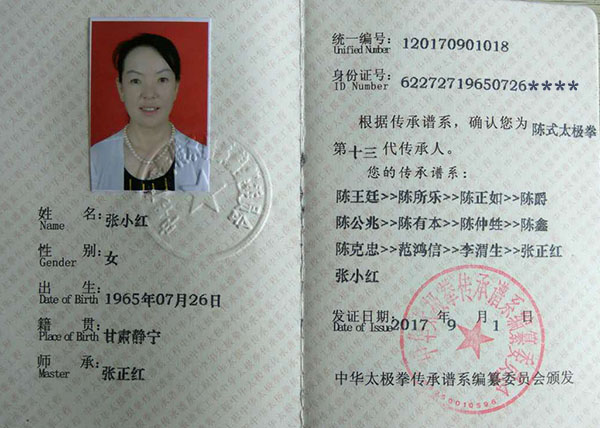 姓 名: 张小红
Name
性 别: 女
Gender
出 生: 1965年07月26日
Date of Birth
籍 贯: 甘肃静宁
Place of Birth
师 承: 张正红
Master
统一编号: 120170901018
Unified Number
身份证号: 62272719650726****
ID Number
根据传承谱系,确认您为 陈式太极拳
第十三代传承人。
您的传承谱系:
陈王廷>>陈所乐>>陈正如>>陈爵
陈公兆>>陈有本>>陈仲甡>>陈鑫
陈克忠>>范鸿信>>李渭生>>张正红
张小红
发证日期: 2017 年 9 月 1 日
Date of Issue
中华太极拳传承谱系编纂委员会颁发
中华太极拳传承谱系编纂委员会